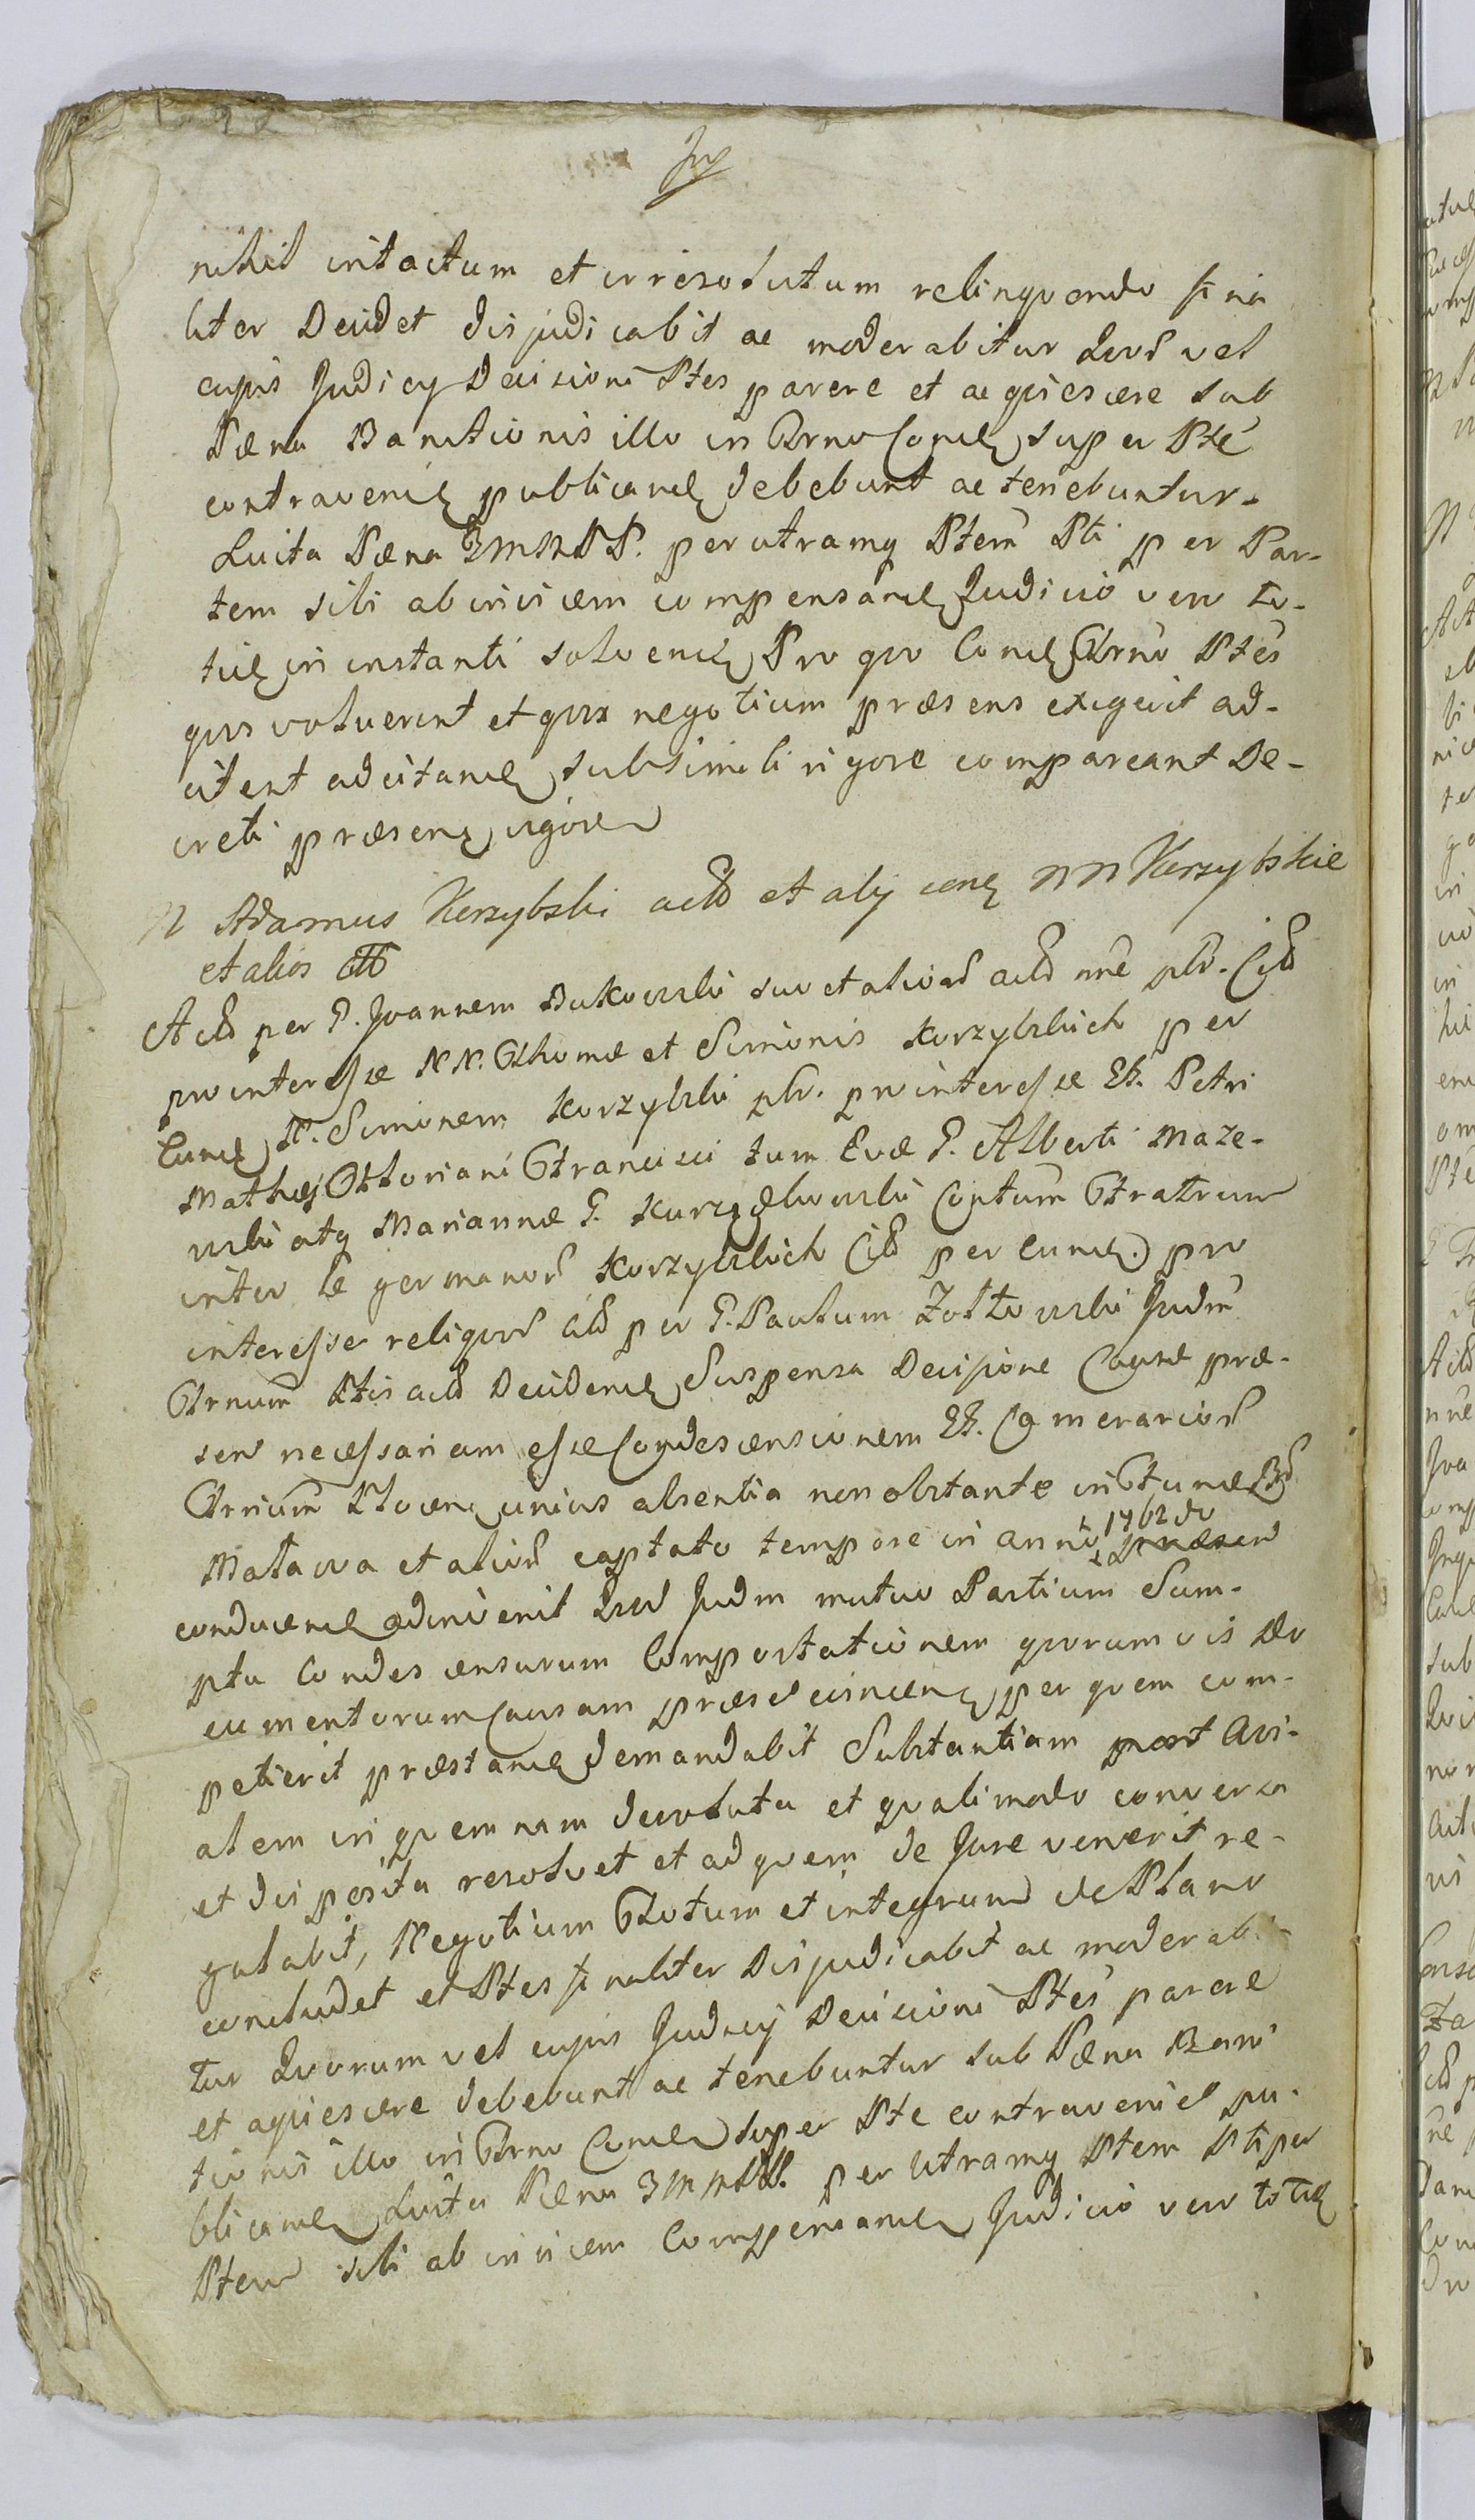 nihil intactum et irresolutum relinquendo fina
liter Decidet disjudicabit ac moderabitur Quor vel
cujus Judicy Decisioni Ptes parere et acquiescere sub
Pæna Banitionis illo in Trno Conde super Pte
contraveniē publicandē debebunt ac tenebuntur.
Luita Pæna 3MMPP. per utramq Ptem Pti per Par-
tem sibi abinvicem compensandē Judicio vero to-
tiē in instanti solvendē Pro quo Condē Trno Ptes
quos voluerint et quos negotium præsens exigerit ad-
citent adcitandē sub simili rigore compareant De-
creti præsenē vigore
N Adamus Korzybski actō et alij cenē NN Korzybskie
et alios cttō
Actō per G. Joannem Bukowski suo et aliorū actō nne plr. Citō
pro interesse NN. Thomæ et Simonis Korzybskich per
Eundē N. Simonem Korzybski plr. pro interesse GG. Petri
Mathæj Floriani Francisci tum Evæ G. Alberti Maze-
wski atq Mariannæ G. Kurządkowski Conjtum Fratrum
inter se germanorū Korzybskich Citō per Eundē. pro
interesse reliquorū Citō per G. Paulum Żołtowski Judm
Trnum Ptis actō Decidendē Suspensa Decisione Causæ præ-
sen necessariam esse Condescensionem GG. Camerariorū
Trnium Plocenē unius absentia non obstante in Fundē Bnorū
Malawa et aliorū captato tempore in anno 1762do præsen
conducendē adinvenit Quod Judm mutuo Partium Sum-
ptu Condescensurum Comportationem quorumvis Do
cumentorum Causam præsē concernē per quem com-
petierit præstandē demandabit Substantiam post Avi-
alem in quemnam devoluta et qualimodo conversa
et disposita resolvet et ad quem de Jure venerit re-
gulabit, Negotium Totum et integrum de Plano
concludet et Ptes finaliter Disjudicabit ac moderabi-
tur Quorum vel cujus Judicij Decisioni Ptes parere
et aquiescere debebunt ac tenebuntur sub Pæna Bani
tionis illo in Trno Condē super Pte contraveniē pu-
blicandē Luita Pæna 3MMPP. per utramq Ptem Pti per
Ptem sibi ab invicem Compensandē Judicio vero totiē